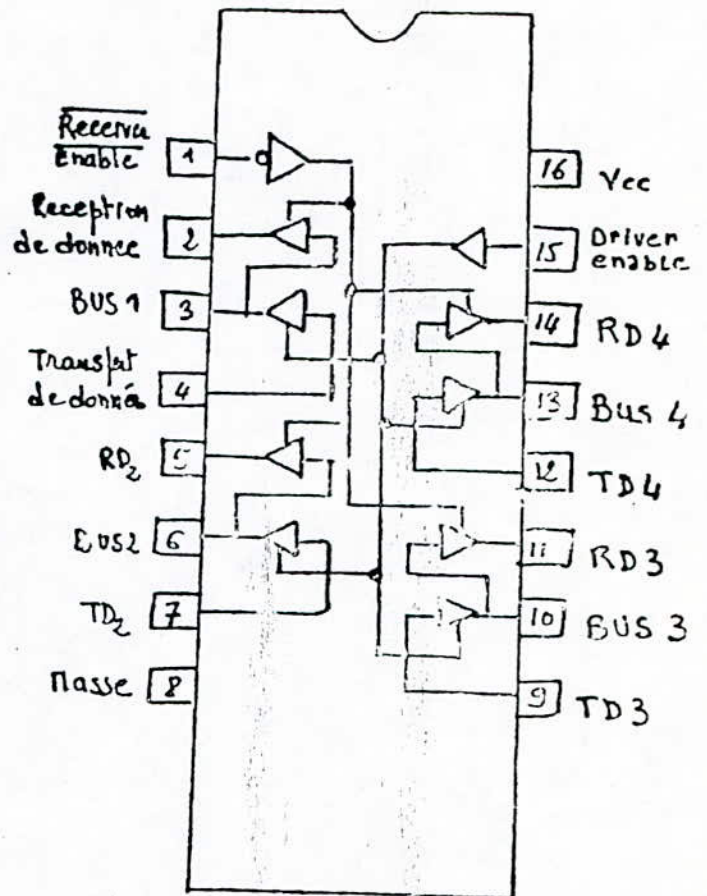 Receiver
Enable
1
Reception
de donnee
2
BUS 1
3
de donnée
4
RD2
5
BUS2
6
TD2
7
Masse
8
16
Vcc
15
Driver
enable
14
RD4
13
Bus 4
12
TD4
11
RD3
10
BUS 3
9
TD3